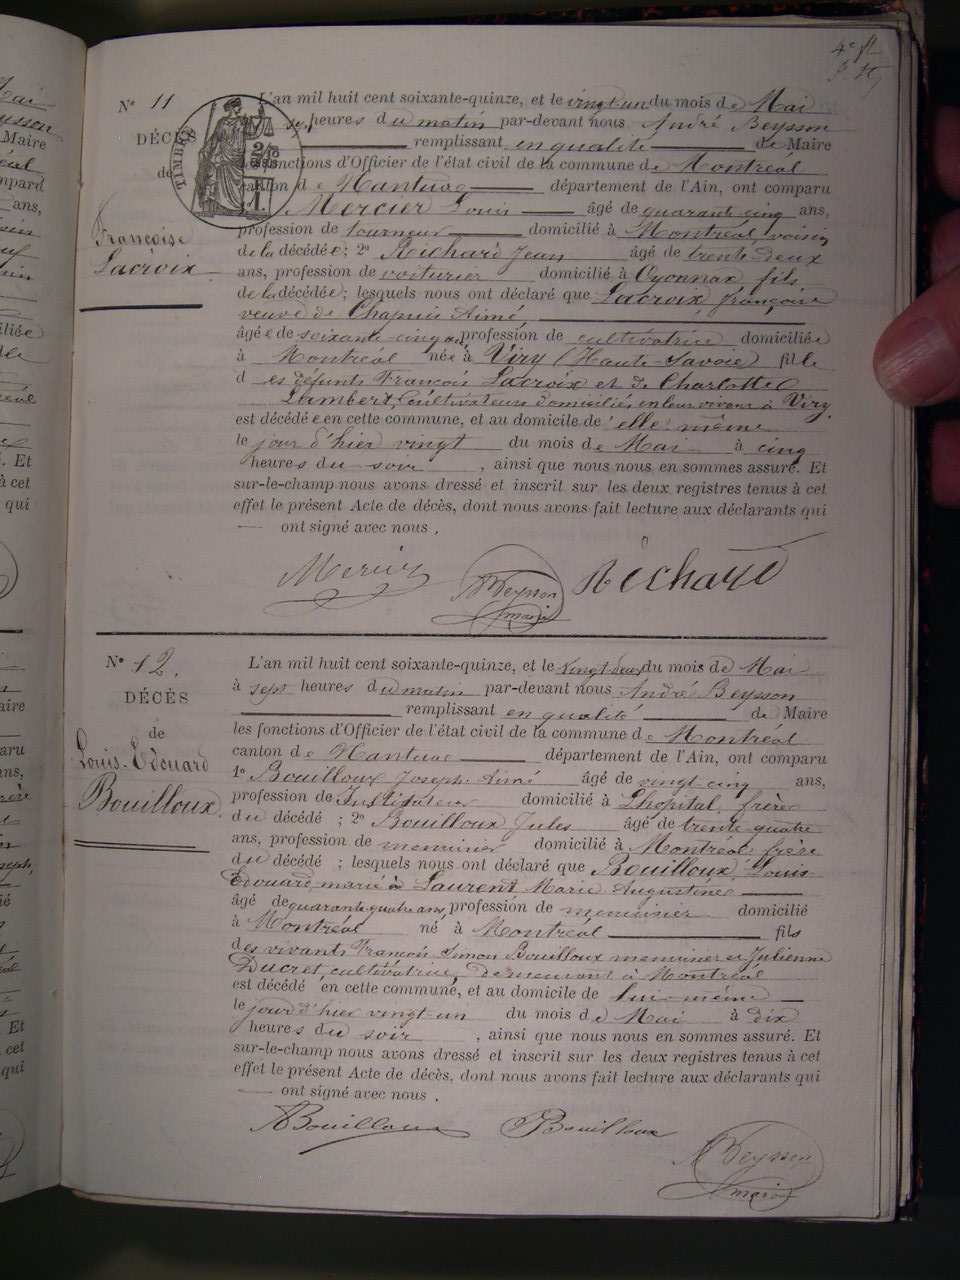 4e
N° 11
DÉCÈS
de
Françoise
Lacroix
TIMBRE
L'an mil huit cent soixante-quinze, et le vingt-un du mois de Mai
heures du matin par-devant nous André Beysson
remplissant en qualité de Maire
fonctions d'Officier de l'état civil de la commune de Montréal
canton de Nantua département de l'Ain, ont comparu
Mercier Louis âgé de quarante cinq ans,
profession de tourneur domicilié à Montréal, voisin
de la décédée; 2° Richard Jean âgé de trente-deux
ans, profession de voiturier domicilié à Oyonnax fils
de la décédée; lesquels nous ont déclaré que Lacroix françoise
veuve de Chapuis Aimé
âgée de soixante-cinq ans, profession de cultivatrice domiciliée
à Montréal née à Viry (Haute-Savoie) fille
des défunts François Lacroix et de Charlotte
Lambert, cultivateurs domiciliés en leur vivant à Viry
est décédée en cette commune, et au domicile de elle même
le jour d'hier vingt du mois de Mai à cinq
heures du soir, ainsi que nous nous en sommes assuré. Et
sur-le-champ nous avons dressé et inscrit sur les deux registres tenus à cet
effet le présent Acte de décès, dont nous avons fait lecture aux déclarants qui
ont signé avec nous.
Mercier ABeysson Richard
maire
N° 12.
DÉCÈS
de
Louis-Edouard
Bouilloux.
L'an mil huit cent soixante-quinze, et le vingt deux du mois de Mai
à sept heures du matin par-devant nous André Beysson
remplissant en qualité de Maire
les fonctions d'Officier de l'état civil de la commune de Montréal
canton de Nantua département de l'Ain, ont comparu
1° Bouilloux Joseph Aimé âgé de vingt-cinq ans,
profession de Instituteur domicilié à Lhopital, frère
du décédé ; 2° Bouilloux Jules âgé de trente-quatre
ans, profession de menuisier domicilié à Montréal frère
du décédé ; lesquels nous ont déclaré que Bouilloux, Louis
Edouard, marié à Laurent Marie Augustine
âgé de quarante quatre ans, profession de menuisier domicilié
à Montréal né à Montréal fils
des vivants François Simon Bouilloux menuisier et Julienne
Ducret, cultivatrice, demeurant à Montréal
est décédé en cette commune, et au domicile de lui-même
le jour d'hier vingt-un du mois de Mai à dix
heures du soir, ainsi que nous nous en sommes assuré. Et
sur-le-champ nous avons dressé et inscrit sur les deux registres tenus à cet
effet le présent Acte de décès, dont nous avons fait lecture aux déclarants qui
ont signé avec nous.
ABouilloux Bouilloux
ABeysson
maire